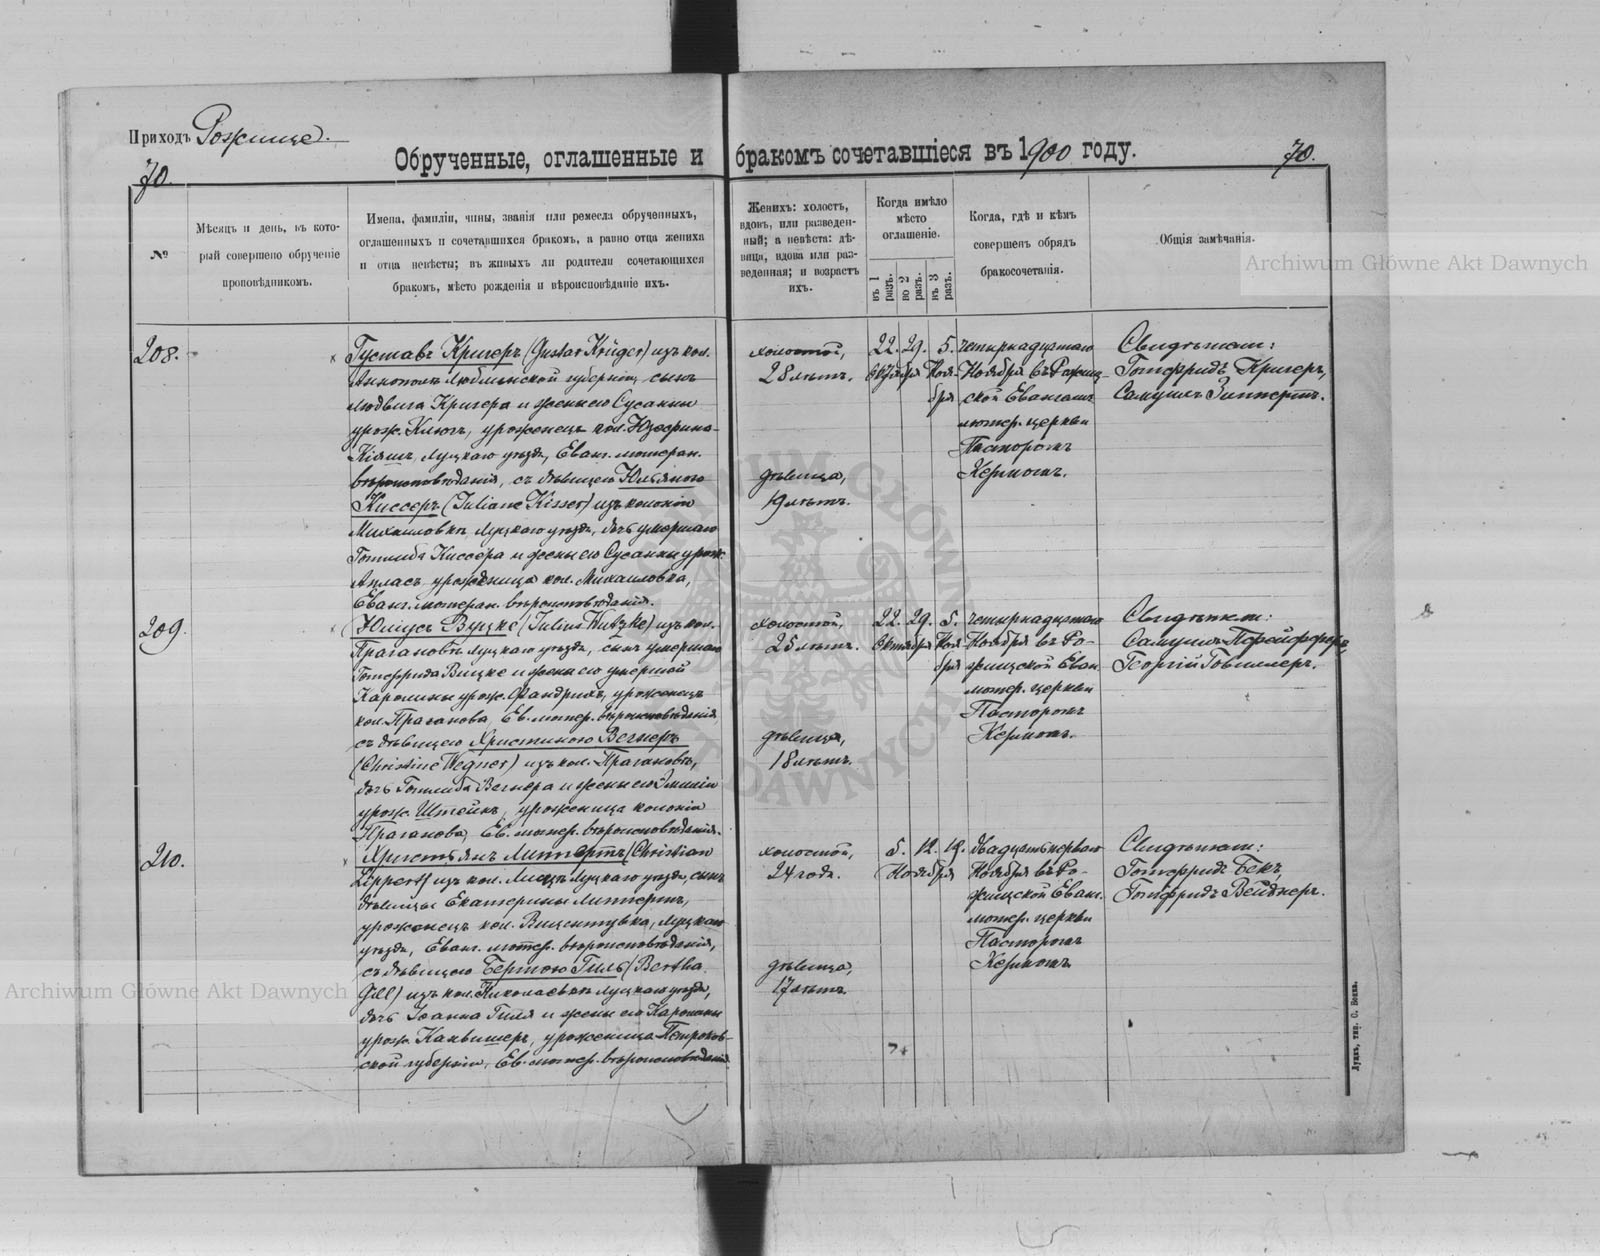 Приходъ Рожище.
70.
Обрученные, оглашенные и бракомъ сочетавшіеся въ 1900 году.
70.
№
Мѣсяцъ и день, въ кото-
рый совершено обрученіе
проповѣдникомъ.
Имена, фамиліи, чины, званія или ремесла обрученныхъ,
оглашенныхъ и сочетавшихся бракомъ, а равно отца жениха
и отца невѣсты; въ живыхъ ли родители сочетающихся
бракомъ, мѣсто рожденія и вѣроисповѣданіе ихъ.
Женихъ: холостъ,
вдовъ, или разведен-
ный; а невѣста: дѣ-
вица, вдова или раз-
веденная; и возрастъ
ихъ.
Когда имѣло
мѣсто
оглашеніе.
въ 1 разъ.
во 2 разъ.
въ 3 разъ.
Когда, гдѣ и кѣмъ
совершенъ обрядъ
бракосочетанія.
Общія замѣчанія.
Archiwum Główne Akt Dawnych
208.
Густавъ Кригеръ (Gustav Krüger) изъ кол.
Аннополь Люблинской губерніи, сынъ
Людвига Кригера и жены его Сусанны
урож. Клюгъ, уроженецъ кол. Юзефина-
Луцкаго уѣзда, Еванг. лютеран.
вѣроисповѣданія, съ дѣвицею Юльяною
Киссеръ (Juliane Kisser) изъ колоніи
Михаиловкъ, Луцкаго уѣзда, дочь умершаго
Готлиба Киссера и жены его Сусанны урож.
Атласъ, уроженица кол. Михаиловка,
Еванг. лютеран. вѣроисповѣданія.
холостой,
28 лѣтъ.
дѣвица,
19 лѣтъ.
22. 29. 5.
Октября Ноя-
бря
четырнадцатаго
Ноября въ Рожищ-
ской Евангел.
лютер. церкви
Пасторомъ
Кермомъ.
Свидѣтели:
Готфридъ Кригеръ,
Самуилъ Зиппертъ.
209.
Юліусъ Вуцке (Julius Wutzke) изъ кол.
Прагановъ, Луцкаго уѣзда, сынъ умершаго
Готфрида Вуцке и жены его умершой
Каролины урож. Фандрихъ, уроженецъ
кол. Праганова, Ев. лютер. вѣроисповѣданія
съ дѣвицею Христиною Вегнеръ
(Christine Wegner) изъ кол. Прагановъ,
дочь Готлиба Вегнера и жены его Эмиліи
урож. Штейнкъ, уроженица колоніи
Праганова, Ев. лютер. вѣроисповѣданія.
холостой,
25 лѣтъ.
дѣвица,
18 лѣтъ.
22. 29. 5.
Октября Ноя
бря
четырнадцатаго
Ноября въ Ро-
жищской Еван.
лютер. церкви
Пасторомъ
Кермомъ.
Свидѣтели:
Самуилъ Пфейфферъ,
Георгій
210.
Христьянъ Липпертъ (Christian
Lippert) изъ кол. Луцкаго уѣзда, сынъ
дѣвицы Екатерины Липпертъ,
уроженецъ кол. Вицентувка, Луцкаго
уѣзда, Еванг. лютер. вѣроисповѣданія,
съ дѣвицею Бертою Гиль (Bertha
Gill) изъ кол. Николаевкъ Луцкаго уѣзда,
дочь Іоанна Гиля и жены его Каролины
урож. уроженица Петроков-
ской губерніи, Ев. лютер. вѣроисповѣданія
холостой,
24 года.
дѣвица,
17 лѣтъ.
5. 12. 19.
Ноября
двадцатьперваго
Ноября въ Ро-
жищской Еванг.
лютер. церкви
Пасторомъ
Кермомъ
Свидѣтели:
Готфридъ Бекъ,
Готфридъ Вейднеръ.
Archiwum Główne Akt Dawnych
Луцкъ, тип. С. Боква.